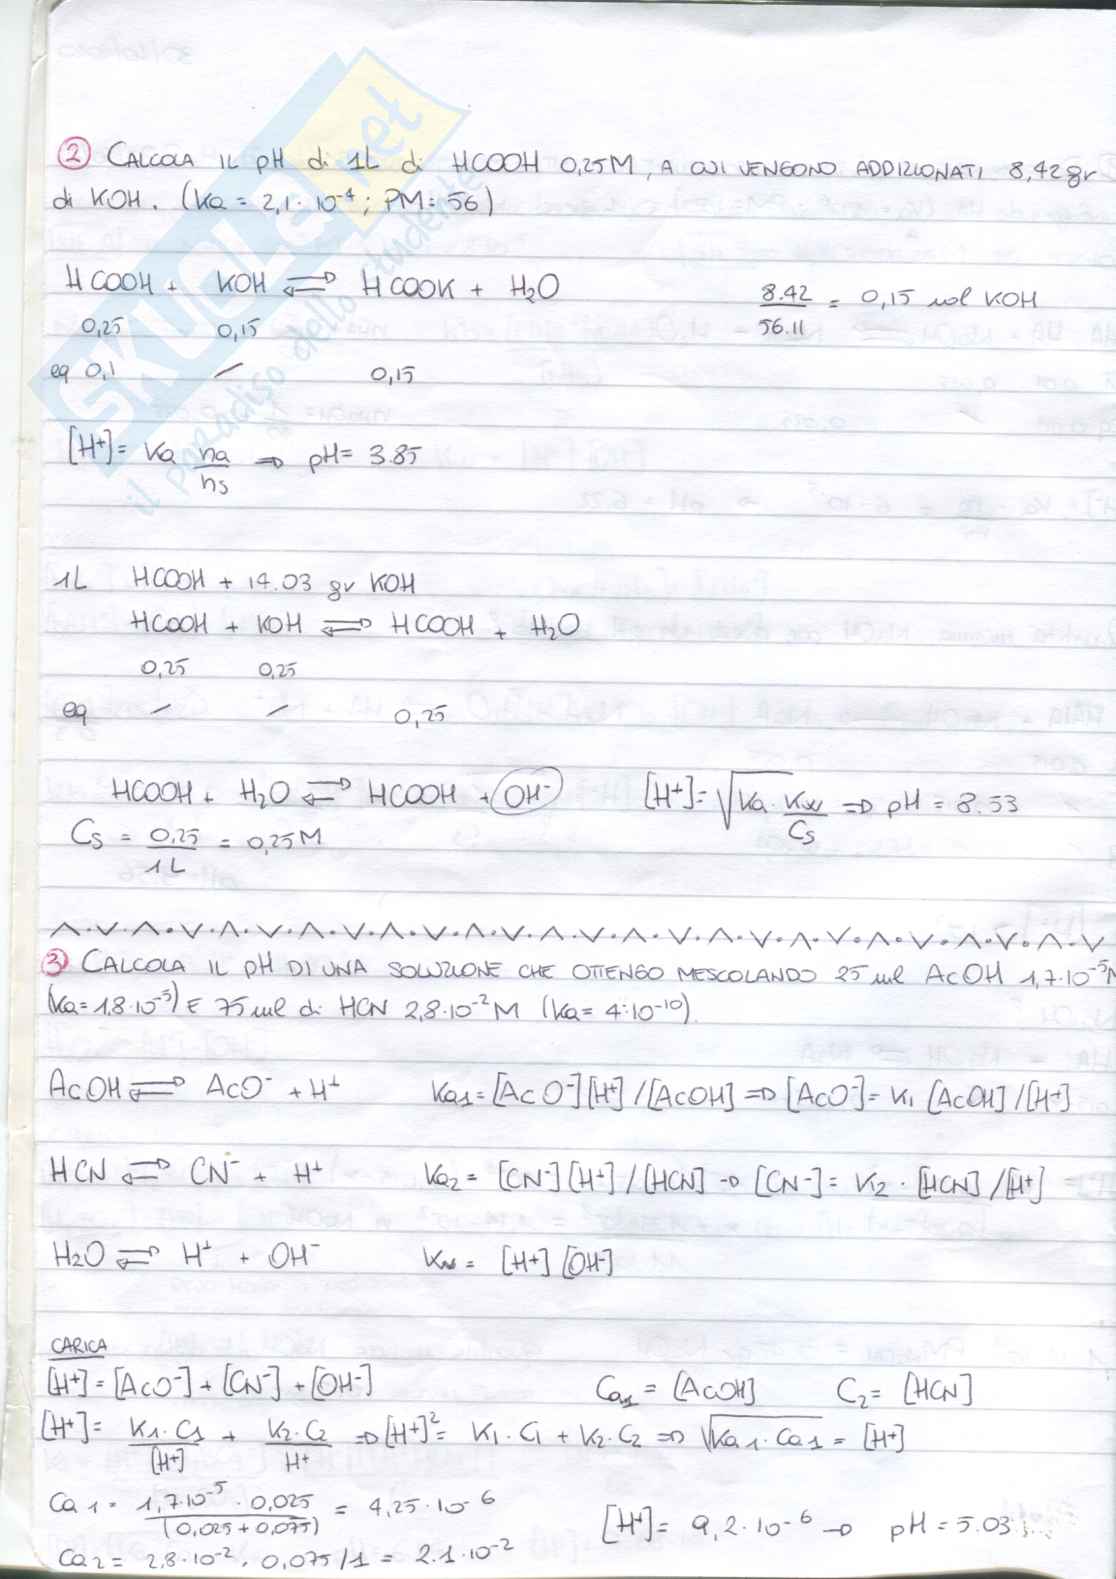 ② CALCOLA IL pH di 1L di HCOOH 0,25M, A CUI VENGONO ADDIZIONATI 8,42 gr
di KOH. (Ka = 2,1·10⁻⁴; PM= 56)
HCOOH + KOH ⇌ HCOOK + H₂O
8.42/56.11 = 0,15 mol KOH
0,25 0,15
eq 0,1 / 0,15
[H⁺]= Ka na/ns ⇒ pH= 3.85
1L HCOOH + 14.03 gr KOH
HCOOH + KOH ⇌ HCOOH + H₂O
0,25 0,25
eq / / 0,25
HCOOH + H₂O ⇌ HCOOH + OH⁻ [H⁺]= √Ka·Kw/Cs ⇒ pH = 8.53
Cs = 0,25/1L = 0,25M
③ CALCOLA IL pH DI UNA SOLUZIONE CHE OTTENGO MESCOLANDO 25 ml AcOH 1,7·10⁻⁵M
(Ka=1,8·10⁻⁵) E 75 ml di HCN 2,8·10⁻²M (Ka= 4·10⁻¹⁰).
AcOH ⇌ AcO⁻ + H⁺ Ka1=[AcO⁻][H⁺]/[AcOH] ⇒ [AcO⁻]= K1 [AcOH]/[H⁺]
HCN ⇌ CN⁻ + H⁺ Ka2 = [CN⁻][H⁺]/[HCN] → [CN⁻]= K2 · [HCN]/[H⁺]
H₂O ⇌ H⁺ + OH⁻ Kw = [H⁺][OH⁻]
CARICA
[H⁺]=[AcO⁻]+[CN⁻]+[OH⁻] Ca1 = [AcOH] C2= [HCN]
[H⁺]= K1·C1/[H⁺] + K2·C2/H⁺ ⇒ [H⁺]²= K1·C1 + K2·C2 ⇒ √Ka1·Ca1 = [H⁺]
Ca1 = 1,7·10⁻⁵ · 0,025/(0,025+0,075) = 4,25·10⁻⁶
[H⁺]= 9,2·10⁻⁶ → pH=5.03
Ca2= 2,8·10⁻² · 0,075/1 = 2.1·10⁻²
SKUOLA.net
il paradiso dello studente